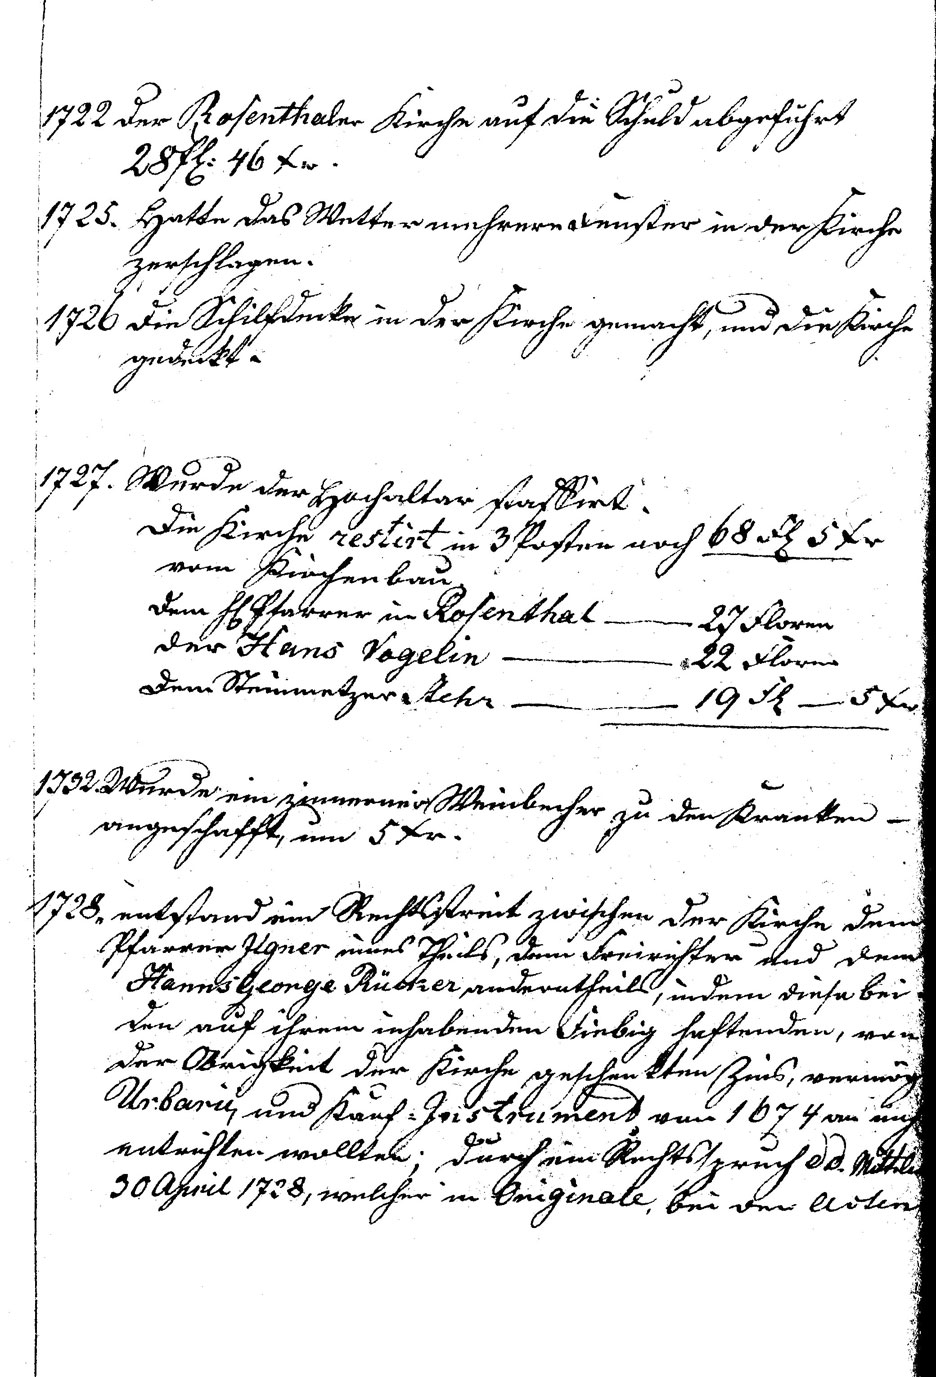 1722 der Rosenthaler Kirche auf die Schuld abgeführt
28 fl: 46 Xr.
1725. Hatte das Wetter mehrere Fenster in der Kirche
zerschlagen.
1726 die Schilfdecke in der Kirche gemacht, und die Kirche
gedeckt.
1727. Wurde der Hochaltar staffirt.
Die Kirche restirt in 3 Posten noch 68 Fl 5 Xr
vom Kirchenbau.
dem H Pfarrer in Rosenthal — 27 Floren
der Hans Vogelin — 22 Floren
dem Steinmetzer — 19 Fl — 5 Xr
1732. Wurde ein zinnerner Weinbecher zu den Kranken —
angeschafft, um 5 Xr.
1728. entstand ein Rechtsstreit zwischen der Kirche dem
Pfarrer Ilgner eines Theils, dem Freirichter und dem
Hanns George Rücker anderntheils, indem diese bei
den auf ihrem inhabenden Fiebig haftenden, von
der Obrigkeit der Kirche geschenkten Zins, vermög
Urbarii, und Kauf-Instrument von 1674 an
entrichten wollten; durch ein Rechtsspruch dd.
30 April 1728, welcher in Originale, bei den Acten